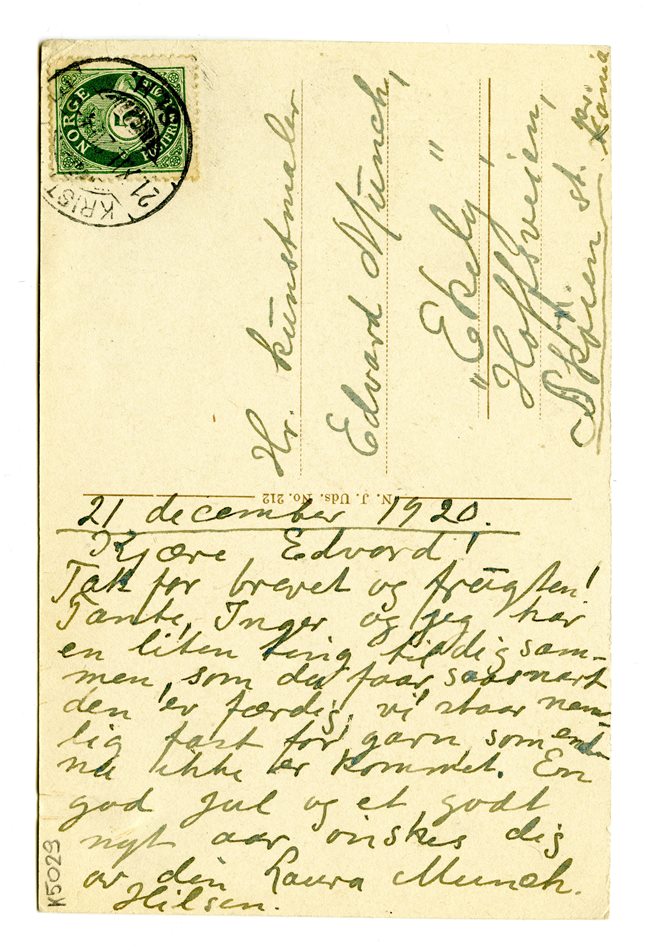 NORGE
5
POSTFRI
KRIST
21.XII
Hr. kunstmaler
Edvard Munch,
"Ekely",
Hoffsveien,
Skøien st.
pr.
Kania
N. J. Uds. No. 212
21 december 1920.
Kjære Edvard!
Tak for brevet og frugten!
Tante, Inger og jeg har
en liten ting til dig sam-
men, som du faar saasnart
den er færdig, vi staar nem-
lig fast for garn, som end-
nu ikke er kommet. En
god jul og et godt
nyt aar ønskes dig
av din Laura Munch.
Hilsen.
K5029